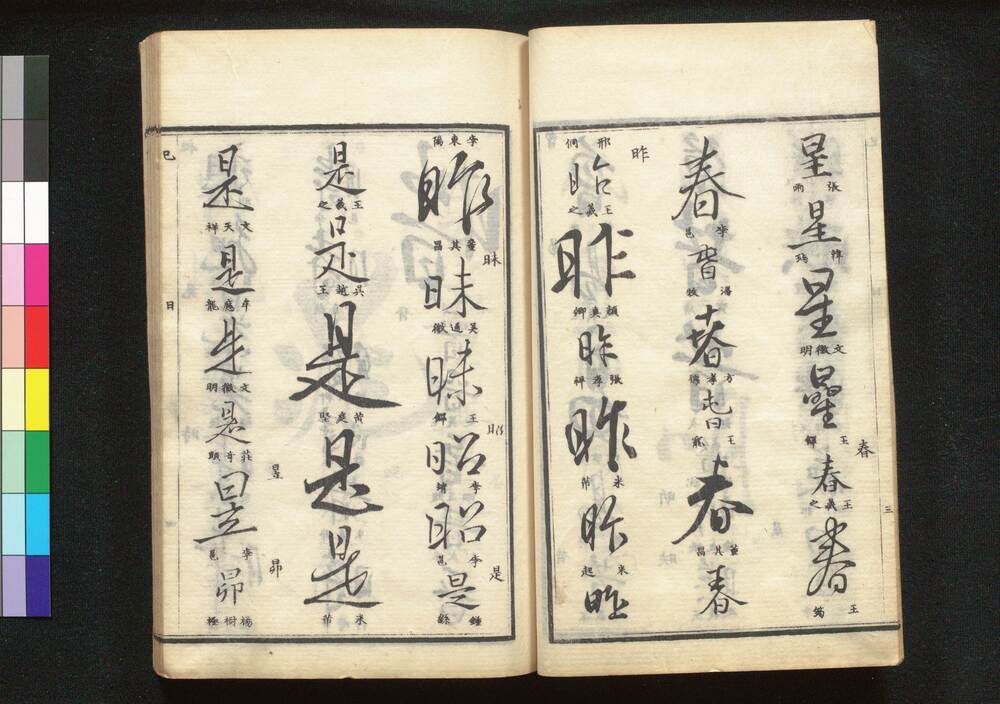 星
張雨
星
星
文徵明
星
王鐸
春
春
王羲之
春
王筠
三
春
李邕
春
春
方孝儒
春
王寵
春
董其昌
春
邢侗
昨
昨
王羲之
昨
顏真卿
昨
張孝祥
昨
米芾
昨
昨
李東陽
昨
董其昌
昧
昧
吳通微
昧
王鐸
昭
昭
李靖
昭
李邕
是
是
鍾繇
是
王羲之
是
吳越王
是
黃庭堅
是
是
米芾
是
文天祥
是
牟應龍
是
文徵明
是
莊奇顯
昱
昱
李邕
昴
昴
日